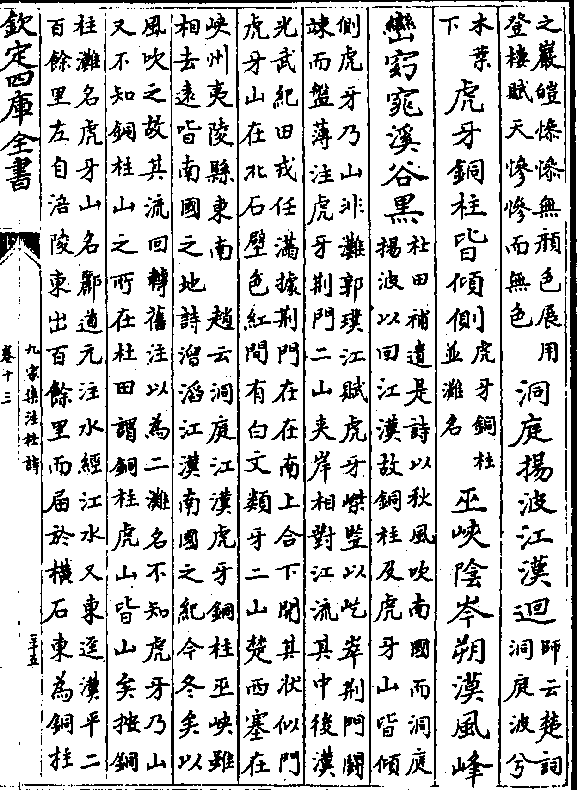 之巖皚慘慘無顏色展用
登樓賦天慘慘而無色
洞庭揚波江漢迴
師云楚詞
洞庭波兮
木葉
下
虎牙銅柱皆傾側
虎牙銅柱
並灘名
巫峽陰岑朔漠風峰
巒窈窕溪谷黑
杜田補遺是詩以秋風吹南國而洞庭
揚波以回江漢故銅柱及虎牙山皆傾
側虎牙乃山非灘郭璞江賦虎牙嵥豎以屹崒荆門闘
竦而盤薄注虎牙荆門二山夾岸相對江流其中後漢
光武紀田戎任滿據荆門在在南上合下開其狀似門
虎牙山在北石壁色紅間有白文類牙二山楚西塞在
峽州夷陵縣東南 趙云洞庭江漢虎牙銅柱巫峽雖
相去遠皆南國之地詩滔滔江漢南國之紀今冬矣以
風吹之故其流回轉舊注以為二灘名不知虎牙乃山
又不知銅柱山之所在杜田謂銅柱虎山皆山矣按銅
柱灘名虎牙山名酈道元注水經江水又東逕漢平二
百餘里左自涪陵東出百餘里而屆於橫石東為銅柱
欽定四庫全書
九家集注杜詩
卷十三
三十五